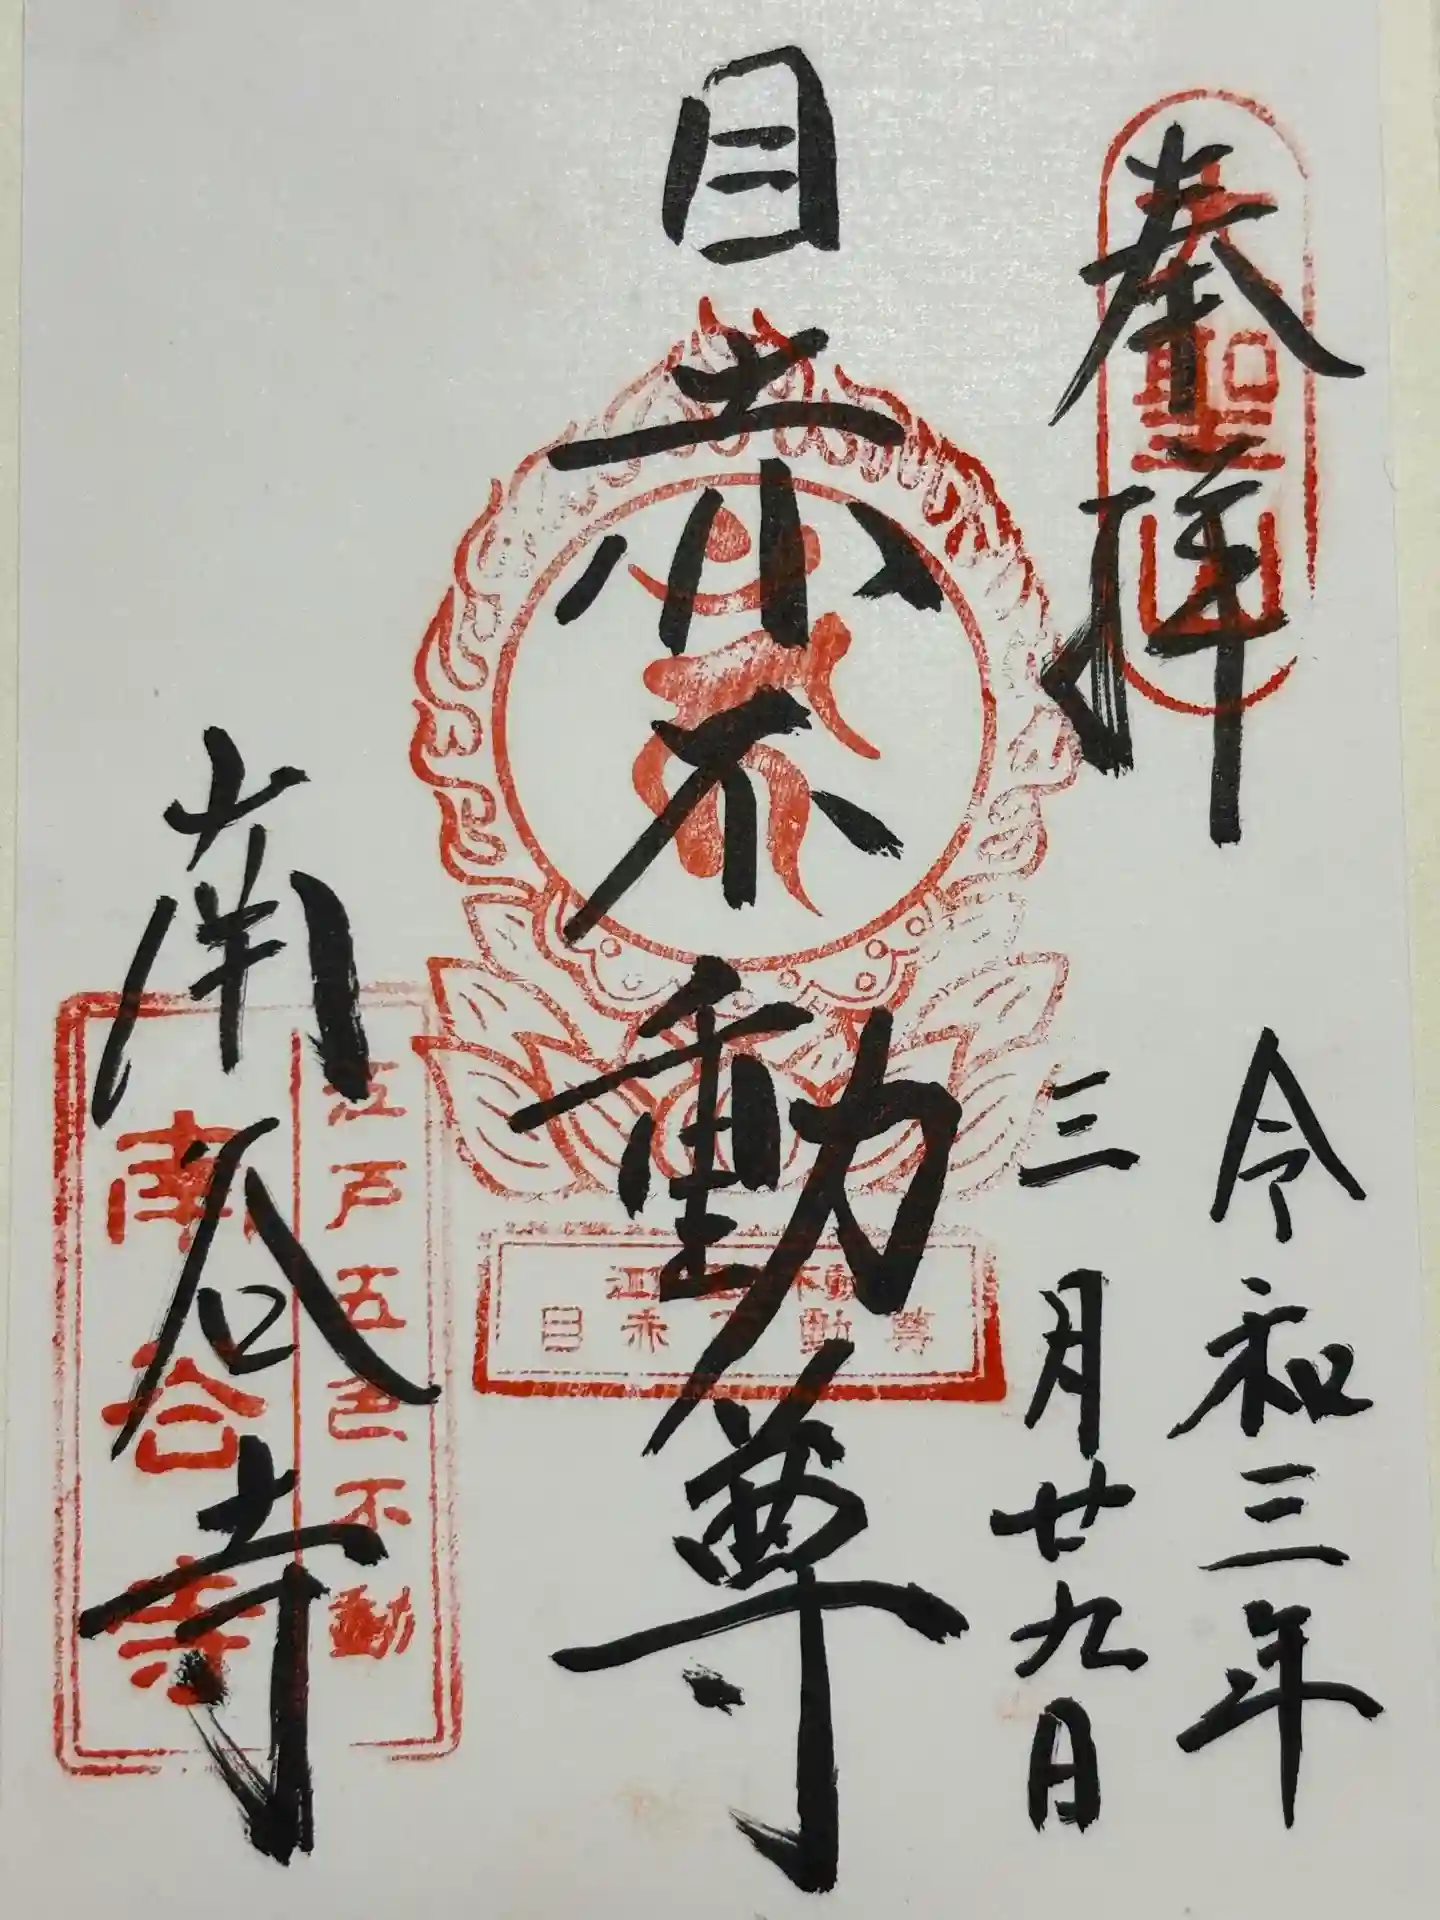 奉拝
令和三年
三月廿九日
目赤不動尊
南谷寺
江戸五色不動
南谷寺
目赤不動尊